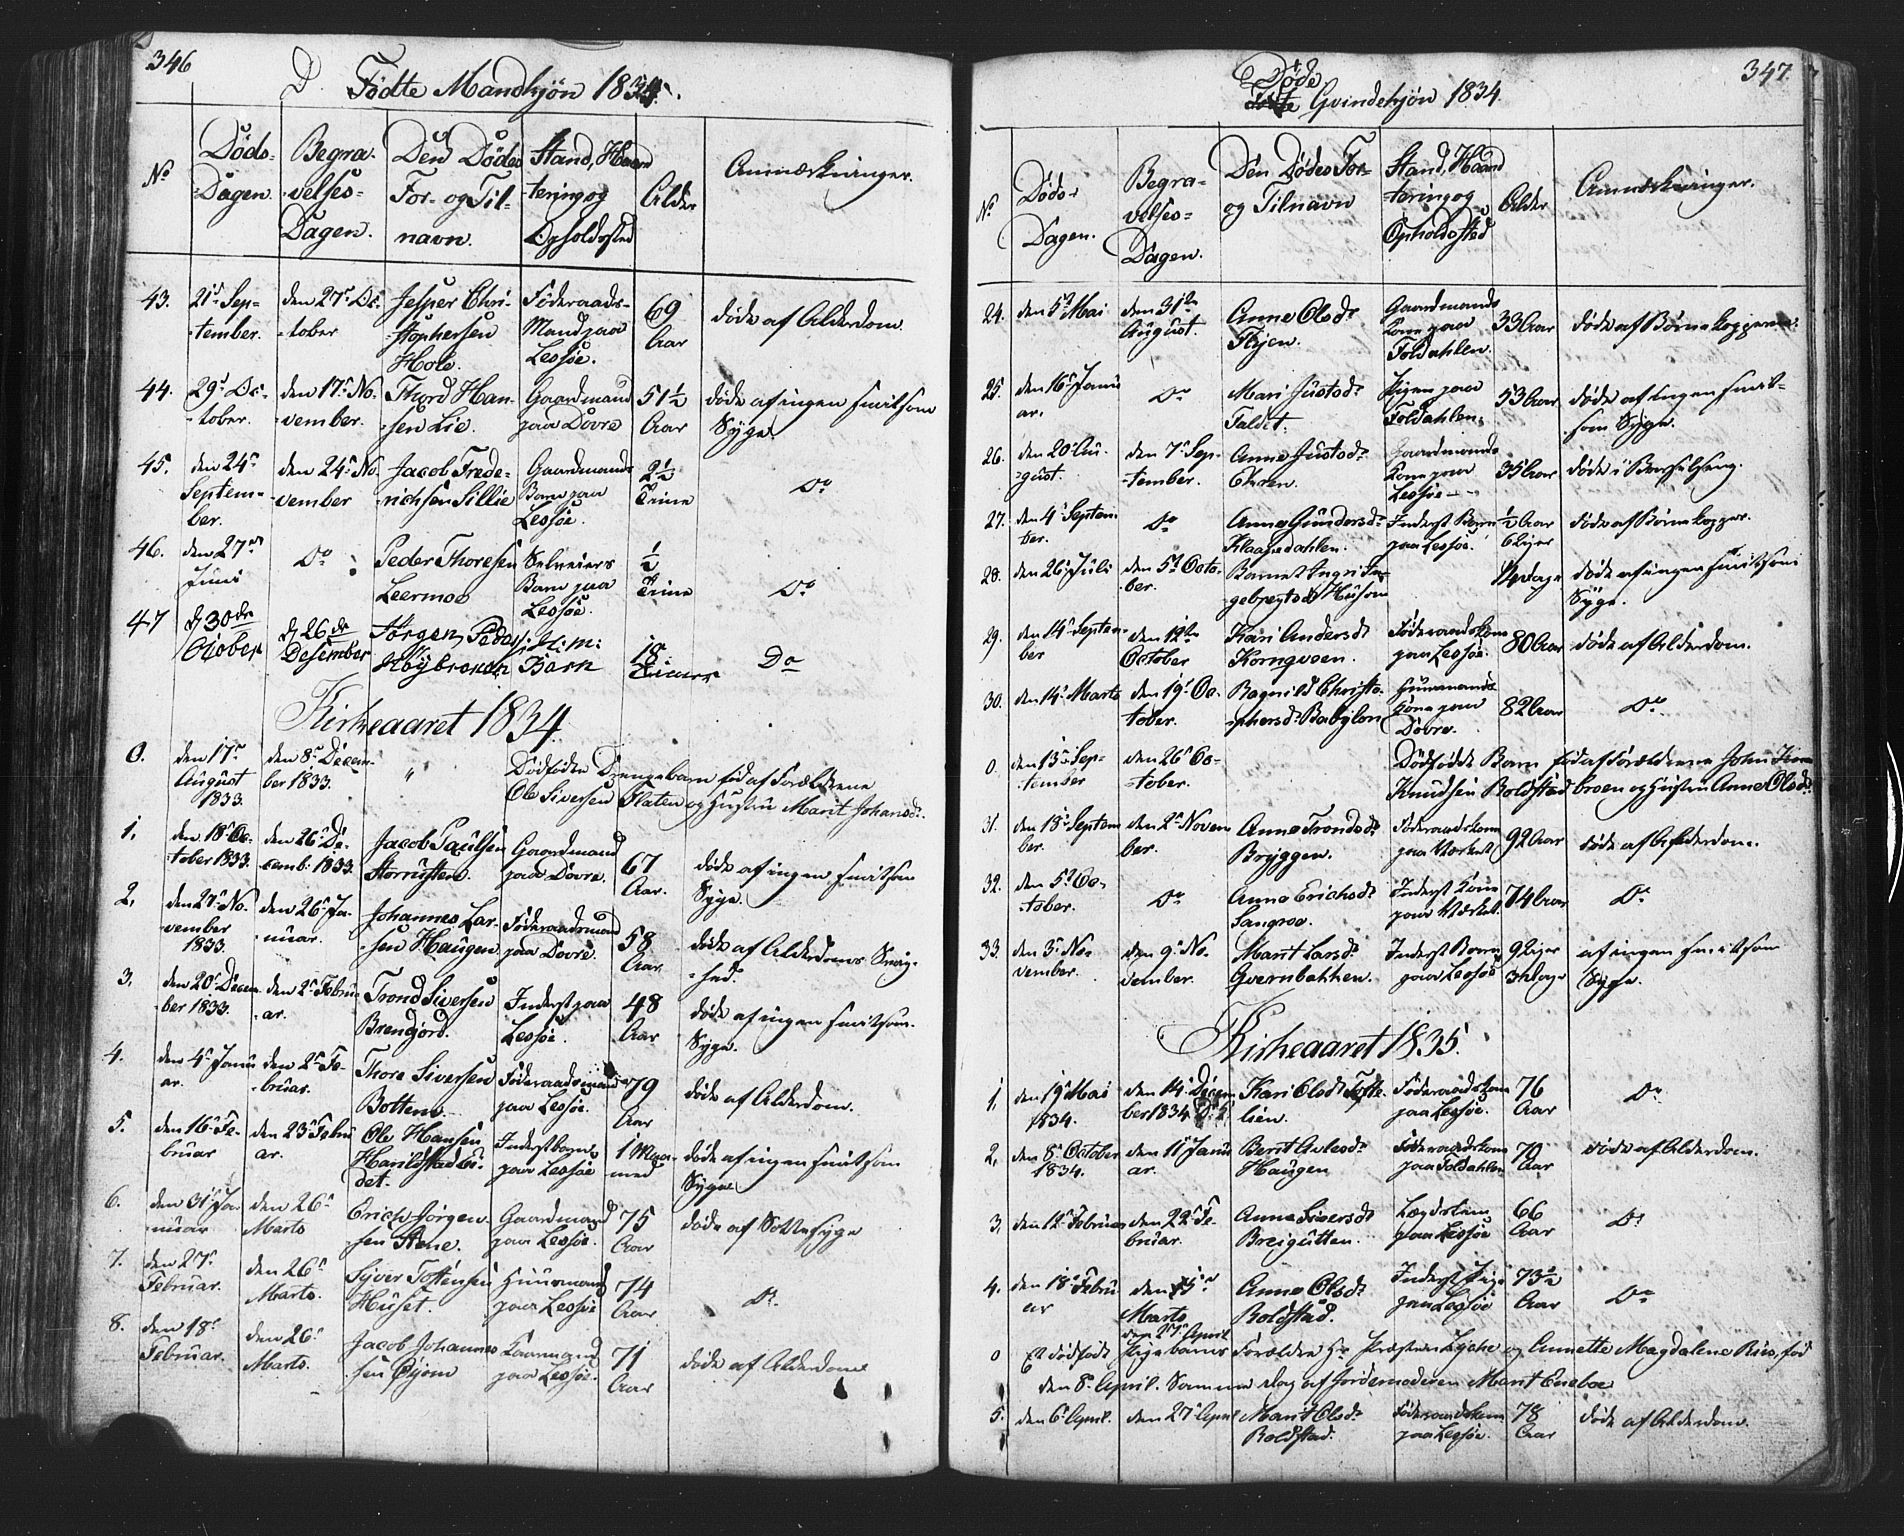 346
D. Födte Mandkjön 1834.
No
Döds-
Dagen.
Begra-
velses-
Dagen.
Den Dödes
For- og Til-
navn.
Stand, Haand
tering og
Opholdssted
Alder
Anmærkninger.
43.
21de Sep-
tember.
den 27de Oc-
tober
Jesper Chri-
stophersen
Hole.
Föderaads-
Mand paa
Lessöe.
69
Aar
döde af Alderdom.
44.
29de Oc-
tober.
den 17de No-
vember.
Thord Han-
sen Lie.
Gaardmand
paa Dovre
51½
Aar
döde af ingen smitsom
Syge.
45.
den 24de
Septem-
ber.
den 24de No-
vember
Jacob Frede-
richsen Lillie
Gaardmands
Barn paa
Lessöe.
2½
Trine
Do
46.
den 27de
Juni
Do
Peder Thoresen
Leermoe
Selveiers
Barn paa
Lessöe.
½
Trine
Do
47
d. 30de
October
d. 26de
Desember
Jörgen Peders:
Höybraaten
H: m:
Barn
18
Do
Kirkeaaret 1834.
0.
den 17de
August
1833.
den 8de Decem-
ber 1833.
"
Dödföden Drengebarn föd af Forældrene
Ole Siversen Flaten og Hustru Marit Johansdr.
1.
den 18de Oc-
tober 1833.
den 26de De-
cemb. 1833.
Jacob Paulsen
Storrusten
Gaardmand
paa Dovre.
67
Aar.
döde af ingen smitsom
Syge.
2.
den 27de No-
vember
1833.
den 26de Ja-
nuar.
Johannes Lar-
sen Haugen
Föderaadsmand
paa Dovre.
58
Aar
döde af Alderdoms Svag-
hed.
3.
den 20de Decem-
ber 1833.
den 2de Febru-
ar.
Trond Siversen
Brenjord.
Inderst paa
Lessöe.
48
Aar
döde af ingen smitsom.
Syge.
4.
den 4de Janu
ar.
den 2de Fe-
bruar.
Thore Siversen
Bottem
Föderaadsmand
paa Lessöe.
79
Aar
döde af Alderdom.
5.
den 16de Fe-
bruar
den 23de Febru
ar.
Ole Hansen
Harildstad Ei-
det.
Inderstbarn
paa Lessöe
1 Maa-
ned
döde af ingen smitsom
Syge
6.
den 31de Ja-
nuar
den 26de
Marts
Erich Jörgen-
sen Stene.
Gaardmand
paa Lessöe.
75
Aar
döde af Sottesyge
7.
den 27de
Februar.
den 26de
Marts.
Syver Tostensen
Huset.
Huusmand
paa Lessöe
74
Aar
Do.
8.
den 18de
Februar.
den 26de
Marts.
Jacob Johannes
sen Öyom
Kaarmand
paa Lessöe.
71
Aar
döde af Alderdom
347
Döde
Födte Qvindekjön 1834.
No
Döds-
Dagen.
Begra-
velses-
Dagen.
Den Dödes For-
og Tilnavn
Stand, Haand
tering og
Opholdssted
Alder
Anmærkninger.
24.
den 5te Mai
den 31te
August.
Anne Olsdr
Flyen.
Gaardmands
Kone paa
Foldahlen.
33 Aar
döde af Börnekopperne.
25.
den 16de Janu
ar.
Do
Mari Justsdr
Faldet.
Pigen paa
Foldahlen.
53 Aar
döde af ingen smit-
som Syge.
26.
den 20de Au-
gust.
den 7de Sep-
tember.
Anne Justsdr
Ehren.
Gaardmands
Kone paa
Lessöe
35 Aar
döde i Barselseng.
27.
den 4de Septem-
ber.
Do
Anne Gundersdr
Klaapedahlen.
Inderst Barn
paa Lessöe.
½ Aar
6 Uger
döde af Börnekopper.
28.
den 26de Juli
den 5te Octo-
ber.
Barnet Ingri In-
gebregtsdr Husom
14 dage
döde af ingen smitsom
Syge.
29.
den 14de Septem-
ber
den 12te
October
Kari Andersdr
Korngveen.
Föderaadskone
paa Lessöe.
80 Aar
döde af Alderdom.
30.
den 14de Marts
den 19de Oc-
tober.
Ragnild Christo-
phersdr. Babylon
Huusmands
Kone paa
Dovre.
82 Aar
Do.
0.
den 13de Sep-
tember
den 26de Oc-
tober.
Dödfödte Barn föd af Forældrene John
Knudsen Boldstad broen og Hustru Anne Olsdr.
31.
den 18de Septem
ber.
den 2de Novem
ber.
Anne Trondsdr
Bryggen.
Föderaadskone
paa Værket
92 Aar
döde af Alderdom.
32.
den 5te Oc-
tober.
Do
Anne Erichsdr
Sangroe.
Inderst Kone
paa Værket.
74 Aar
Do
33.
den 3de No-
vember.
den 9de No-
vember.
Marit Larsdr
Qvernbakken.
Inderst Barn
paa Lessöe
9 Uger
3 dage
af ingen smitsom
Syge.
Kirkeaaret 1835.
1,
den 19de Mai
1834.
den 14de Decem
ber 1834
Kari Olsdr Tofte
lien.
Föderaadskone
paa Lessöe.
76
Aar
Do
2,
den 8de October
1834.
den 11te Janu
ar.
Berit Aslesdr
Haugen
Föderaadskone
paa Foldahlen
79
Aar
döde af Alderdom.
3,
den 12te Februar
den 22de Fe-
bruar.
Anne Siversdr
Breigutten
Lægdslem
paa Lessöe
66
Aar
Do
4.
den 18de Febru
ar
den
Marts
Anne Olsdr
Boldstad.
Inderst Pige
paa Lessöe
73½
Aar
Do
den 27de April
0
Et dödfödt Pigebarns Forældre Hr Præsten Lyche og Annette Magdalene Riis, föd
den 8de April. Samme dag af Jordemoderen Marit Eneboe
5.
den 6te April.
den 27de April
Marit Olsdr
Boldstad.
Föderaadskone
paa Lessöe.
78
Aar
döde af Alderdom.